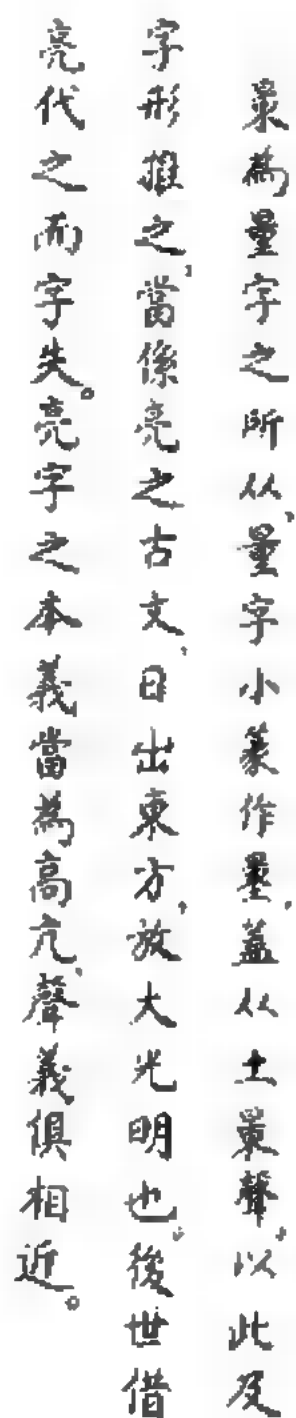 㬥為量字之所从，量字小篆作量，蓋从土㬥聲，以此及
字形推之，當係亮之古文，日出東方，放大光明也。後世借
亮代之而字失。亮字之本義當為高亢，聲義俱相近。